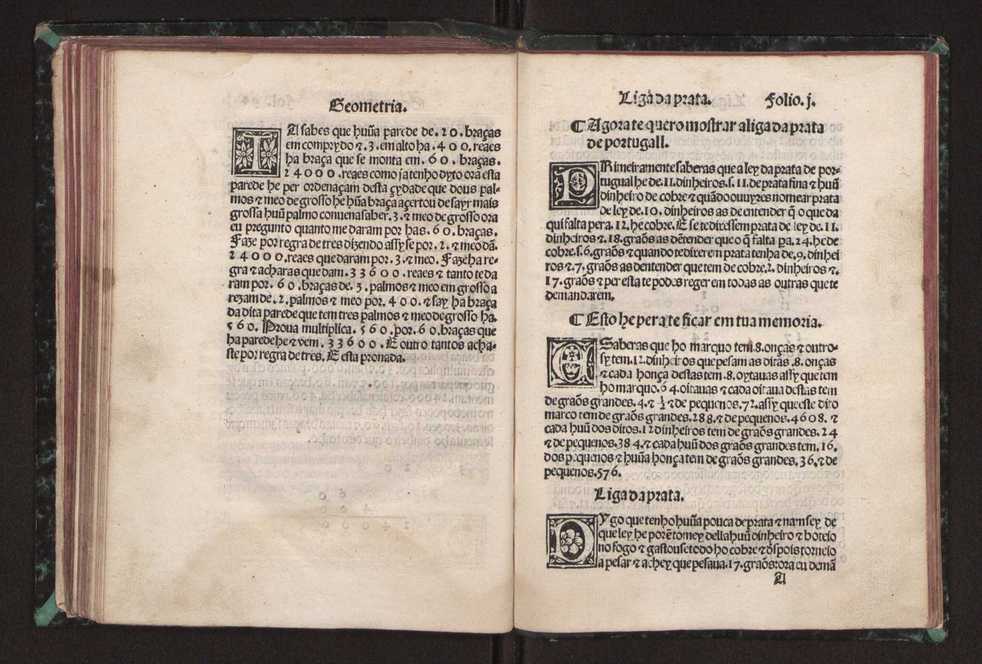 Geometria.
TA sabes que huũa parede de .20. braças
em comprydo & .3. em alto ha .400. reaes
ha braça que se monta em .60. braças.
24000. reaes como ja tenho dyto ora esta
parede he per ordenaçam desta çydade que dous pal-
mos & meo de grosso he hũa braça açertou de sayr mais
grossa huũ palmo conuem a saber .3. & meo de grosso ora
eu pregunto quanto me daram por has .60. braças.
Faze por regra de tres dizendo assy se por .2. & meo dã.
24000. reaes que daram por .3. & meo. Faze ha re-
gra & acharas que dam .33600. reaes & tanto te da
ram por .60. braças de .3. palmos & meo em grosso a
rezam de .2. palmos & meo por .400. & say ha braça
da dita parede que tem tres palmos & meo de grosso ha.
560. Proua multiplica .560. por .60. braças que
ha parede he & vem .33600. E outro tantos acha-
ste por regra de tres. E esta prouada.
Liga da prata. Folio. j.
¶ Agora te quero mostrar a liga da prata
de portugall.
PRimeiramente saberas que a ley da prata de por-
tugual he de .11. dinheiros .s. 11. de prata fina & huũ
dinheiro de cobre & quãdo ouuyres nomear prata
de ley de .10. dinheiros as de entender q̃ o que da
qui falta pera .12. he cobre. E se te dissem prata de ley de .11.
dinheiros & .18. grãos as dẽtender que o q̃ falta pa .24. he de
cobre .s. 6. grãos & quando te direrem prata tenha de .9. dinhei
ros & .7. grãos as dentender que tem de cobre .2. dinheiros &.
17. grãos & per esta te podes reger em todas as outras que te
demandarem.
¶ Esto he pera te ficar em tua memoria.
E Saberas que ho marquo tem .8. onças & outro-
sy tem .12. dinheiros que pesam as ditas .8. onças
& cada honça destas tem .8. oytauas assy que tem
ho marquo .64. oitauas & cada oitaua destas tem
de grãos grandes .4. & ½ & de pequenos .72. assy que este dito
marco tem de grãos grandes .288. & de pequenos .4608. &
cada huũ dos ditos .12 dinheiros tem de grãos grandes .24
& de pequenos .384. & cada huũ dos grãos grandes tem .16.
dos pequenos & huũa honça tem de grãos grandes .36. & de
pequenos .576.
Liga da prata.
DYgo que tenho huũa pouca de prata & nam sey de
que ley he porẽ tomey della huũ dinheiro & boteio
no fogo & gastouse todo ho cobre & dspois torneio
a pesar & achey que pesaua .17. grãos: ora eu demã
A